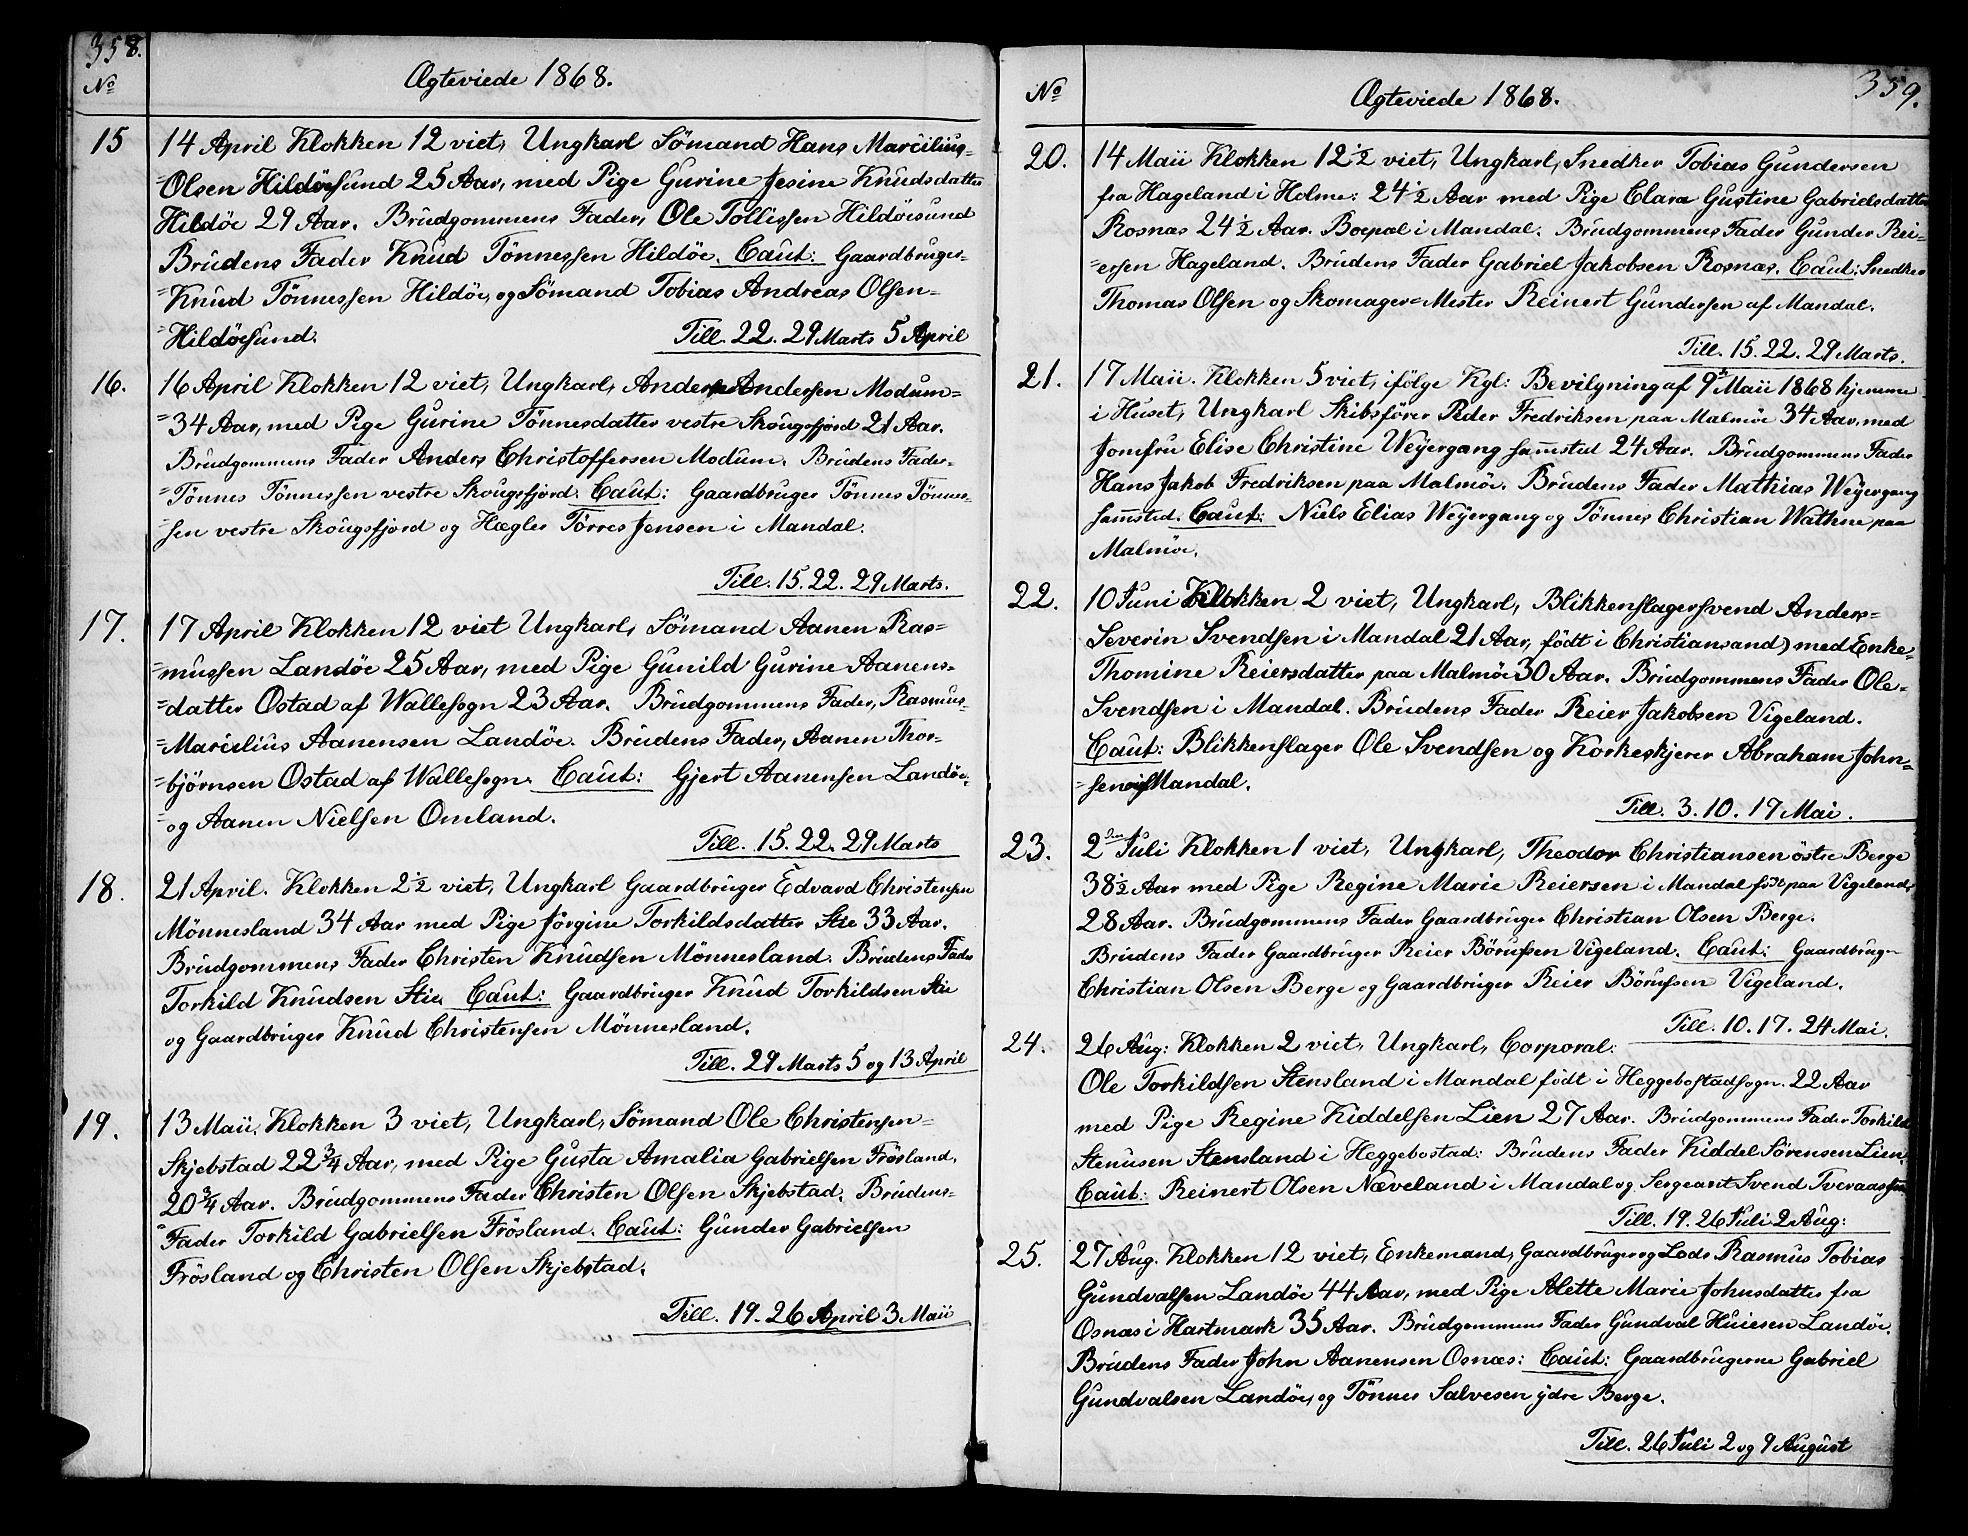 358.
No
Ægteviede 1868.
15
14 April Klokken 12 viet, Ungkarl Sömand Hans Marcilius-
-Olsen Hildöesund 25 Aar, med Pige Gurine Jesine Knudsdatter
Hildöe 29 Aar. Brudgommens Fader, Ole Tollissen Hildöesund
Brudens Fader Knud Tönnessen Hildöe. Caut: Gaardbruger-
-Knud Tönnessen Hildöe, og Sömand Tobias Andreas Olsen-
-Hildöesund.
Till. 22. 29 Marts 5 April
16.
16 April Klokken 12 viet, Ungkarl, Anders Andersen Modum-
-34 Aar, med Pige Gurine Tönnesdatter vestre Skougsfjord 21 Aar.
Brudgommens Fader Anders Christoffersen Modum. Brudens Fader-
-Tönnes Tönnessen vestre Skougsfjord. Caut: Gaardbruger Tönnes Tönnes-
-sen vestre Skougsfjord og Hægler Törres Jensen i Mandal.
Till. 15. 22. 29 Marts.
17.
17 April Klokken 12 viet Ungkarl, Sömand Aanen Ras-
-mussen Landöe 25 Aar, med Pige Gunild Gurine Aanens-
-datter Ostad af Wallesogn 23 Aar. Brudgommens Fader, Rasmus-
-Marcelius Aanensen Landöe. Brudens Fader, Aanen Thor-
-björnsen Ostad af Wallesogn. Caut: Gjert Aanensen Landöe-
-og Aanen Nielsen Omland.
Till. 15. 22. 29 Marts
18.
21 April. Klokken 2 1/2 viet, Ungkarl Gaardbruger Edvard Christensen
Mönnesland 34 Aar med Pige Jörgine Torkildsdatter Stie 33 Aar.
Brudgommens Fader Christen Knudsen Mönnesland. Brudens Fader
Torkild Knudsen Stie. Caut: Gaardbruger Knud Torkildsen Stie
og Gaardbruger Knud Christensen Mönnesland.
Till. 29 Marts 5 og 13 April
19.
13 Maii. Klokken 3 viet, Ungkarl, Sömand Ole Christensen-
Skjebstad 22 3/4 Aar, med Pige Gusta Amalia Gabrielsen Frösland,
20 3/4 Aar. Brudgommens Fader Christen Olsen Skjebstad. Brudens-
-Fader Torkild Gabrielsen Frösland. Caut: Gunder Gabrielsen
Frösland og Christen Olsen Skjebstad.
Till. 19. 26 April 3 Maii
No
Ægteviede 1868.
359.
20.
14 Maii Klokken 12 1/2 viet, Ungkarl, Snedker Tobias Gundersen
fra Hageland i Holme: 24 1/2 Aar med Pige Clara Gustine Gabrielsdatter
Rosnæs 24 1/2 Aar. Boepæl i Mandal. Brudgommens Fader Gunder Rei-
-ersen Hageland. Brudens Fader Gabriel Jakobsen Rosnæs. Caut: Snedker
Thomas Olsen og Skomager-Mester Reinert Gundersen af Mandal.
Till. 15. 22. 29 Marts.
21.
17 Maii. Klokken 5 viet, ifölge Kgl: Bevilgning af 9de Maii 1868 hjemme
i Huset, Ungkarl Skibsförer Peder Fredriksen paa Malmöe 34 Aar, med
Jomfru Elise Christine Weyergang sammsted 24 Aar. Brudgommens Fader
Hans Jakob Fredriksen paa Malmöe. Brudens Fader Mathias Weyergang
sammsted. Caut: Niels Elias Weyergang og Tönnes Christian Wathne paa
Malmöe.
22.
10 Juni Klokken 2 viet, Ungkarl, Blikkenslagersvend Anders-
Severin Svendsen i Mandal 21 Aar, födt i Christiansand) med Enke-
Thomine Reiersdatter paa Malmöe 30 Aar. Brudgommens Fader Ole-
Svendsen i Mandal. Brudens Fader Reier Jakobsen Vigeland.
Caut: Blikkenslager Ole Svendsen og Korkeskjerer Abraham John-
-sen Mandal.
Till. 3. 10. 17 Mai.
23.
2den Juli Klokken 1 viet, Ungkarl, Theodor Christiansen östre Berge
38 1/2 Aar med Pige Regine Marie Reiersen i Mandal födt paa Vigeland,
28 Aar. Brudgommens Fader Gaardbruger Christian Olsen Berge.
Brudens Fader Gaardbruger Reier Börufsen Vigeland. Caut: Gaardbruger
Christian Olsen Berge og Gaardbruger Reier Börufsen Vigeland.
Till. 10. 17. 24 Mai.
24.
26 Aug: Klokken 2 viet, Ungkarl, Corporal.
Ole Torkildsen Stensland i Mandal födt i Heggebostadsogn. 22 Aar
med Pige Regine Kiddelsen Lien 27 Aar. Brudgommens Fader Torkild
Stenusen Stensland i Heggebostad: Brudens Fader Kiddel Sörensen Lien.
Caut: Reinert Olsen Næveland i Mandal og Sergeant Svend Tveraas
Till. 19. 26 Juli 2 Aug:
25.
27 Aug. Klokken 12 viet, Enkemand, Gaardbruger og Lods Rasmus Tobias
Gundvalsen Landöe 44 Aar, med Pige Alette Marie Johnsdatter fra
Osnæs i Hartmark 35 Aar. Brudgommens Fader Gundval Huiesen Landöe.
Brudens Fader John Aanensen Osnæs: Caut: Gaardbrugerne Gabriel
Gundvalsen Landöe, og Tönnes Salvesen ydre Berge.
Till. 26 Juli 2 og 9 August